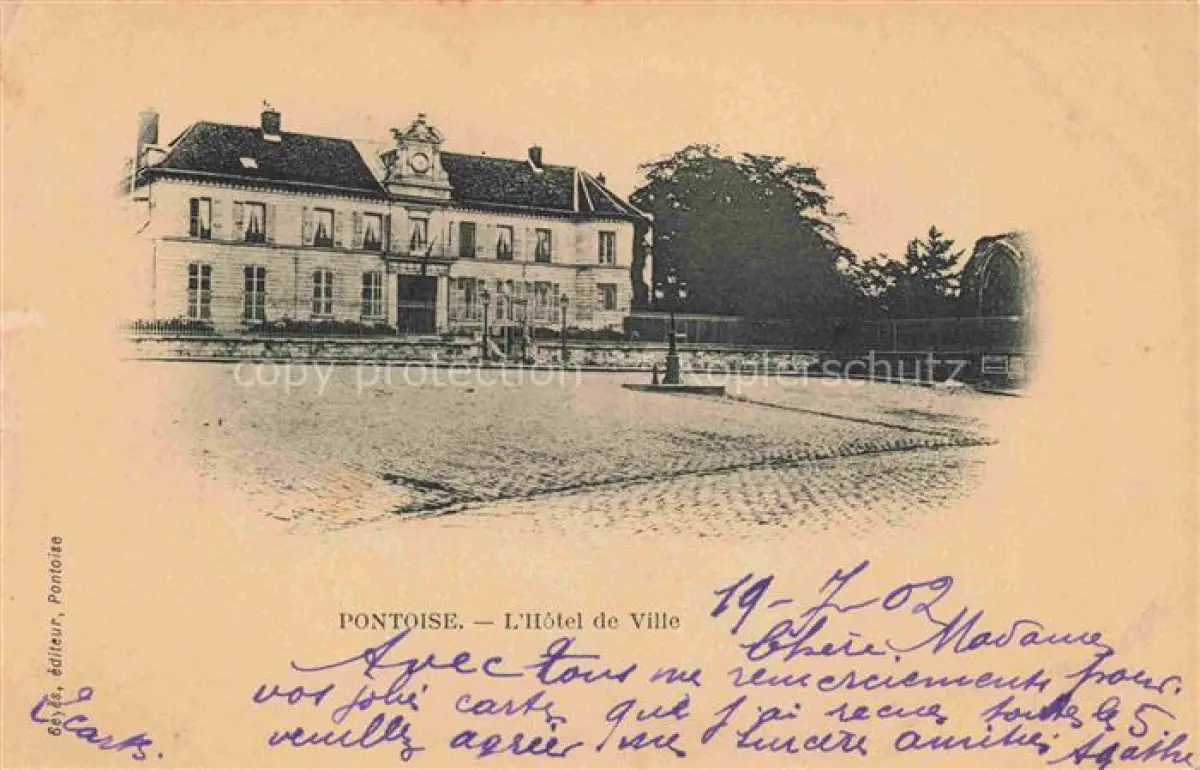 copy protection Kopierschutz
Beyés, éditeur, Pontoise
PONTOISE. — L'Hôtel de Ville
19-7-02
Chère Madame
Avec tous me remerciements pour
vos jolie cartes que j'ai recues toutes le 5
veuillez agréer mes sincère amitiés Agathe
cartes.